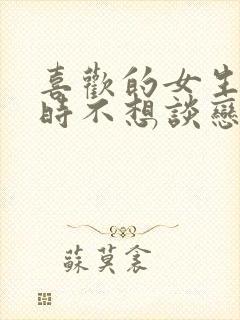 喜歡的女生
時不想談戀
蘇莫衾